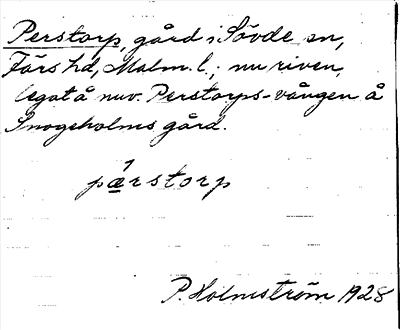 Perstorp, gård i Sövde sn,
Färs hd, Malm. l.; nu riven,
legat å nuv. Perstorps-vången å
Snogeholms gård.
pærstorp
P. Holmström 1928